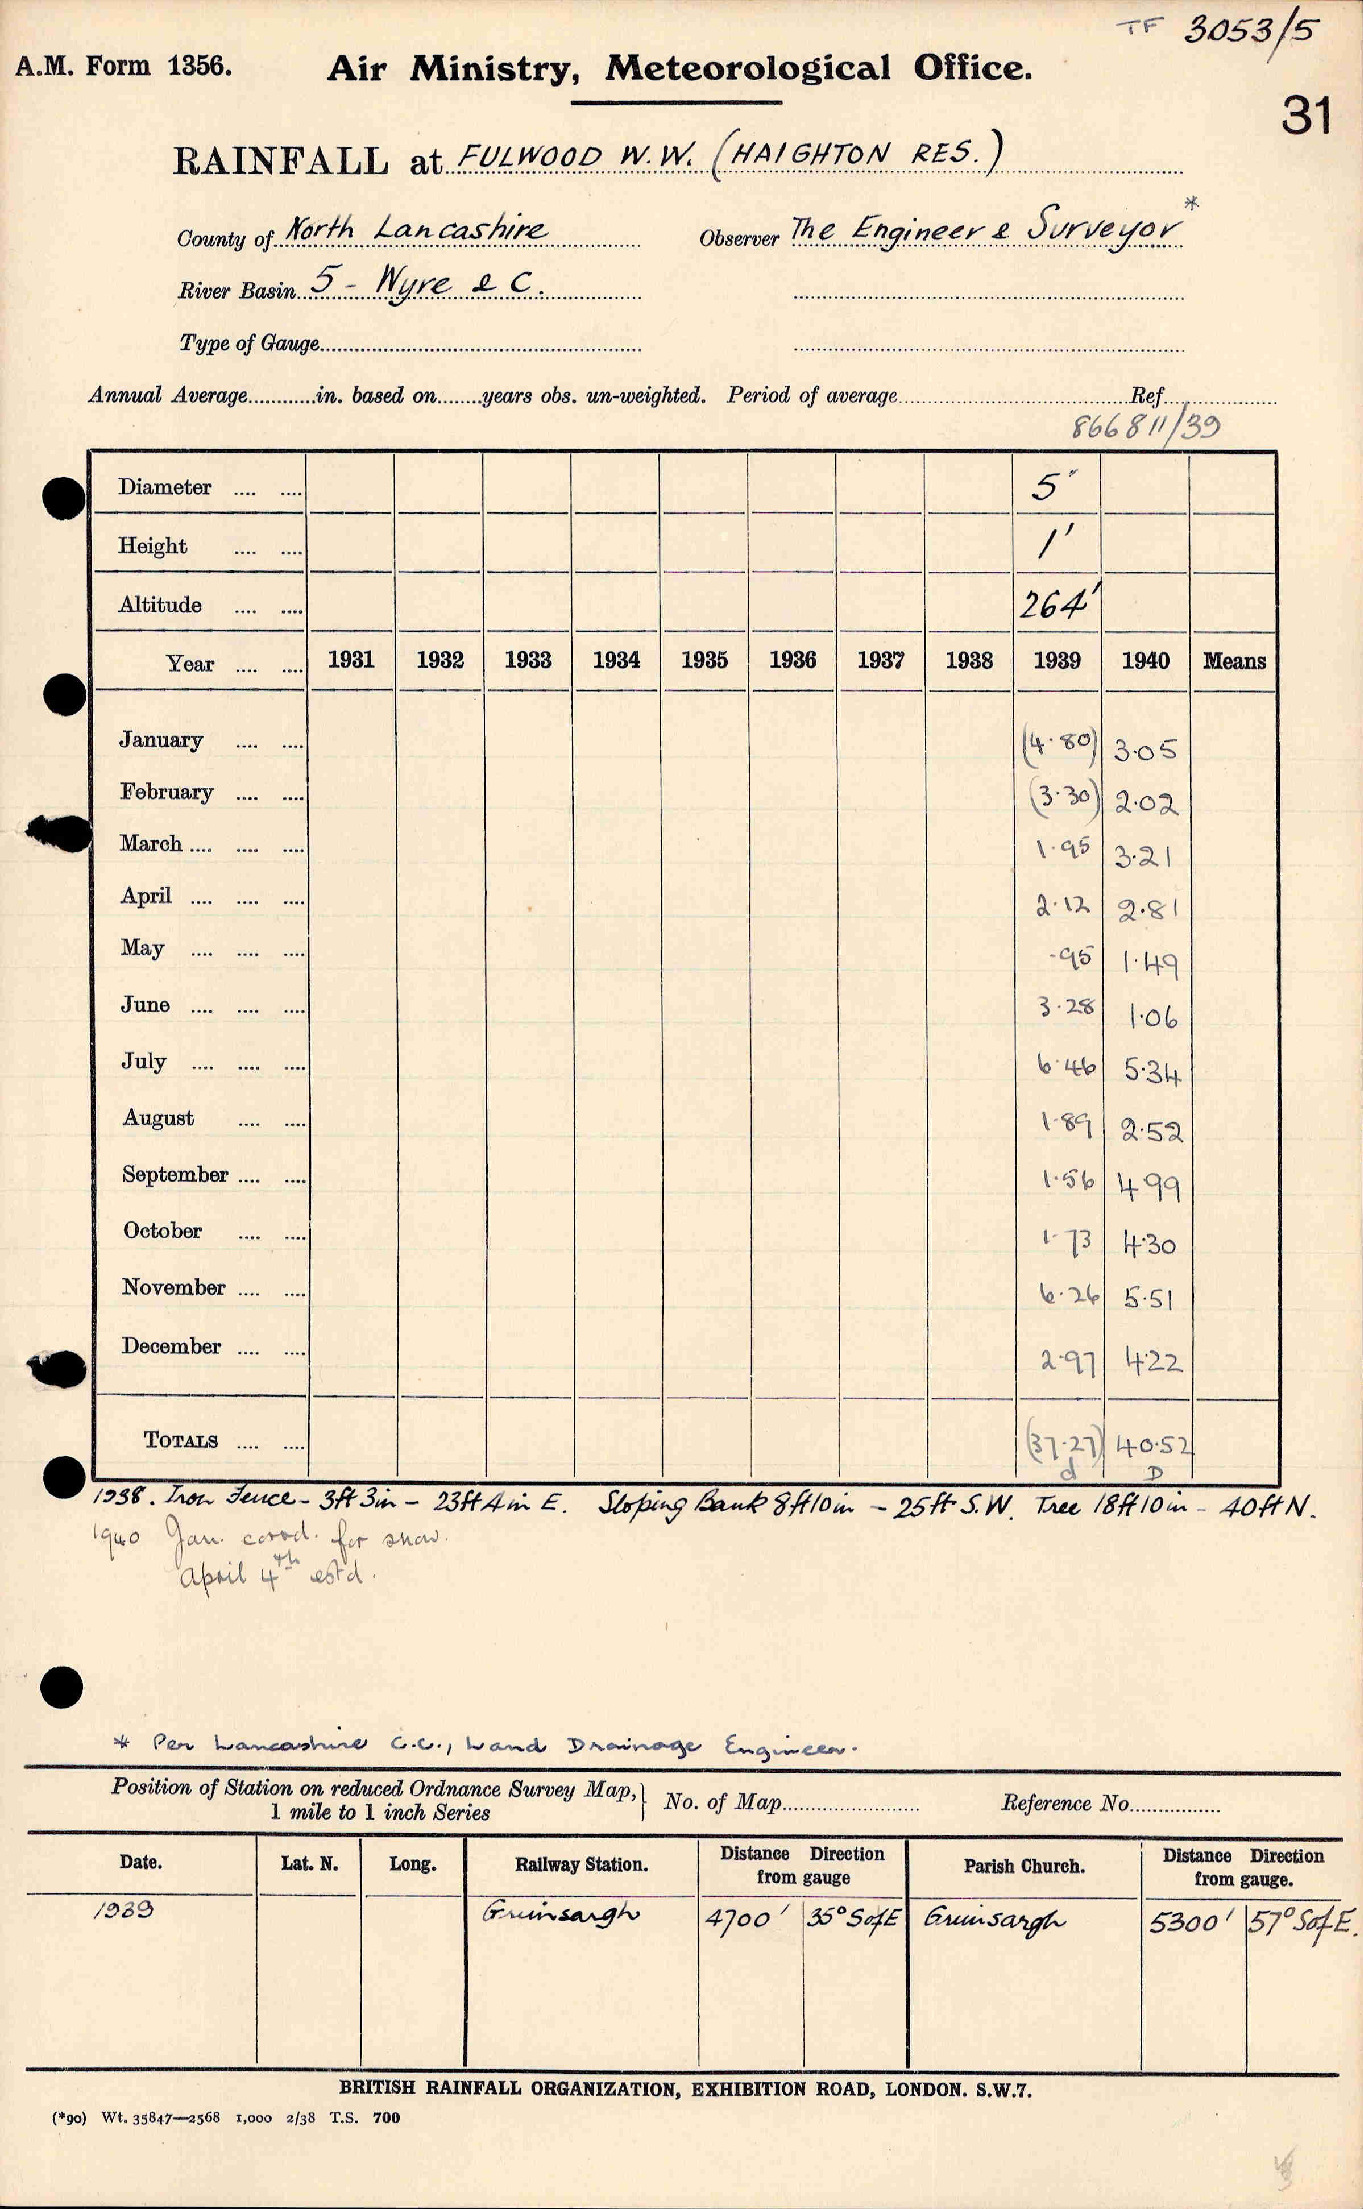 TF 3053/5
A.M. Form 1356. Air Ministry, Meteorological Office.
31
RAINFALL at FULWOOD W.W. (HAIGHTON RES.)
County of North Lancashire Observer The Engineer & Surveyor *
River Basin 5 - Wyre & C.
Type of Gauge
Annual Average in. based on years obs. un-weighted. Period of average Ref.
866811/39
Diameter 5"
Height 1'
Altitude 264'
Year 1931 1932 1933 1934 1935 1936 1937 1938 1939 1940 Means
January (4.80) 3.05
February (3.30) 2.02
March 1.95 3.21
April 2.12 2.81
May .95 1.49
June 3.28 1.06
July 6.46 5.34
August 1.89 2.52
September 1.56 4.99
October 1.73 4.30
November 6.26 5.51
December 2.97 4.22
TOTALS (37.27) 40.52
d D
1938. Iron Fence - 3ft 3in - 23ft 4in E. Sloping Bank 8ft 10in - 25ft S.W. Tree 18ft 10in - 40ft N.
1940 Jan. corrd. for snow.
April 4th estd.
* Per Lancashire C.C., Land Drainage Engineer.
Position of Station on reduced Ordnance Survey Map, 1 mile to 1 inch Series No. of Map Reference No.
Date. Lat. N. Long. Railway Station. Distance Direction from gauge Parish Church. Distance Direction from gauge.
1939 Grimsargh 4700' 35° S of E Grimsargh 5300' 57° S of E.
BRITISH RAINFALL ORGANIZATION, EXHIBITION ROAD, LONDON. S.W.7.
(*90) Wt. 35847—2568 1,000 2/38 T.S. 700